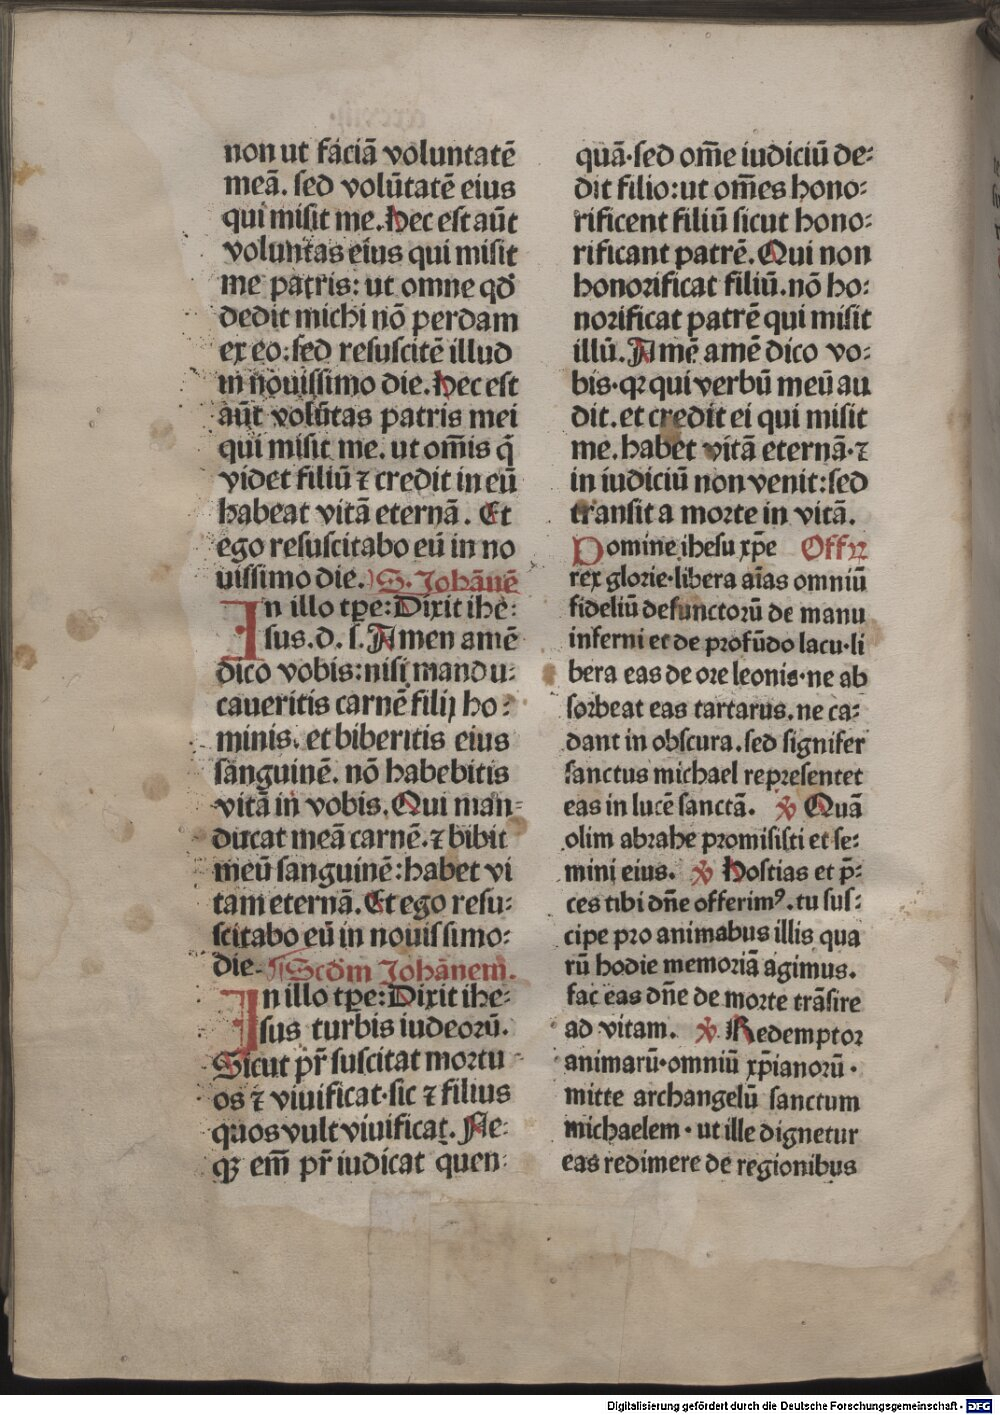 non ut faciā voluntatē
meā. sed volūtatē eius
qui misit me. Hec est aūt
voluntas eius qui misit
me patris: ut omne qd̄
dedit michi nō perdam
ex eo: sed resuscitē illud
in nouissimo die. Hec est
aūt volūtas patris mei
qui misit me. ut om̄is q̄
videt filiū ⁊ credit in eū
habeat vitā eternā. Et
ego resuscitabo eū in no
uissimo die. S. Johānē
In illo tp̄e: Dixit ihe:
sus. d. s. Amen amē
dico vobis: nisi mandu:
caueritis carnē filij ho:
minis. et biberitis eius
sanguinē. nō habebitis
vitā in vobis. Qui man:
ducat meā carnē. ⁊ bibit
meū sanguinē: habet vi
tam eternā. Et ego resu:
scitabo eū in nouissimo:
die. Scd̄m Johānem.
In illo tp̄e: Dixit ihe:
sus turbis iudeorū.
Sicut pr̄ suscitat mortu
os ⁊ viuificat. sic ⁊ filius
quos vult viuificat. Ne:
qꝫ em̄ pr̄ iudicat quen:
quā. sed om̄e iudiciū de:
dit filio: ut om̄es hono:
rificent filiū sicut hono:
rificant patrē. Qui non
honorificat filiū. nō ho:
norificat patrē qui misit
illū. Amē amē dico vo:
bis. qꝛ qui verbū meū au
dit. et credit ei qui misit
me. habet vitā eternā. ⁊
in iudiciū non venit: sed
transit a morte in vitā.
Domine ihesu xp̄e Offꝝ
rex glorie. libera aīas omniū
fideliū defunctorū de manu
inferni et de profūdo lacu. li
bera eas de ore leonis. ne ab
sorbeat eas tartarus. ne ca:
dant in obscura. sed signifer
sanctus michael representet
eas in lucē sanctā. ℣ Quā
olim abrahe promisisti et se:
mini eius. ℣ Hostias et p̄:
ces tibi dn̄e offerimꝰ. tu sus:
cipe pro animabus illis qua
rū hodie memoriā agimus.
fac eas dn̄e de morte trāsire
ad vitam. ℣ Redemptor
animarū. omniū xp̄ianorū.
mitte archangelū sanctum
michaelem. ut ille dignetur
eas redimere de regionibus
Digitalisierung gefördert durch die Deutsche Forschungsgemeinschaft - DFG